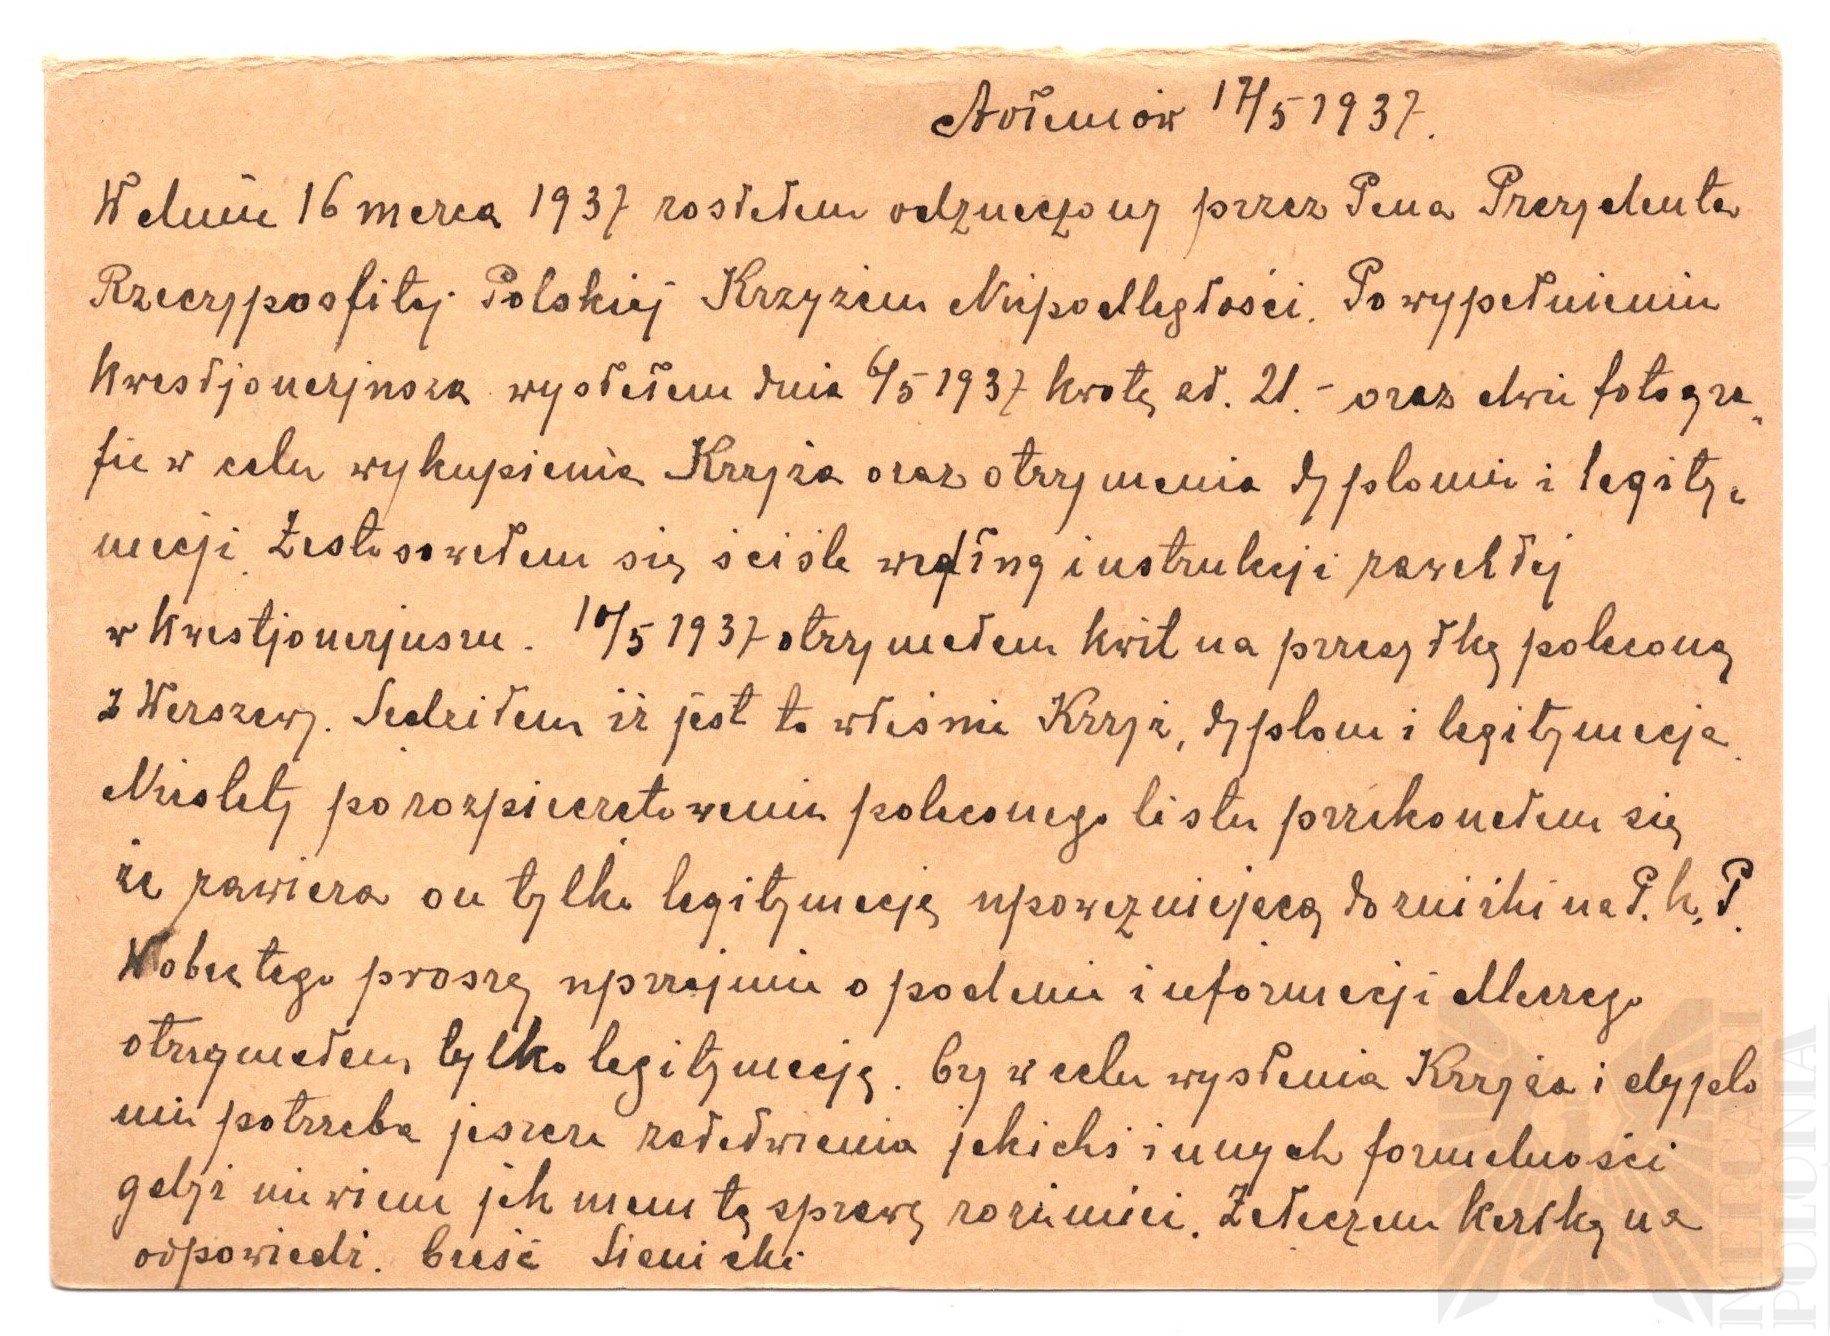 Adamów 17/5 1937.
W dniu 16 marca 1937 zostałem odznaczony przez Pana Prezydenta
Rzeczyposfitej Polskiej Krzyżem Niepodległości. Po wypełnieniu
kwestjonarjusza wysłałem dnia 6/5 1937 kwotę zł. 21.- oraz dwie fotogra„
fie w celu wykupienia Krzyża oraz otrzymania dyplomu i legity„
macji. Zastosowałem się ściśle według instrukcji zawartej
w kwestjonarjuszu. 10/5 1937 otrzymałem kwit na przesyłkę poleconą
z Warszawy. Sądziłem iż jest to właśnie Krzyż, dyplom i legitymacja.
Niestety po rozpieczętowaniu poleconego listu przekonałem się
że zawiera on tylko legitymację upoważniającą do zniżki na P.K.P.
Wobec tego proszę uprzejmie o podanie informacji dlaczego
otrzymałem tylko legitymację. Czy w celu wysłania Krzyża i dyplo
mu potrzeba jeszcze załatwienia jakichś innych formalności
gdyż nie wiem jak mam tę sprawę rozumieć. Załączam kartkę na
odpowiedź. Cześć Sienicki